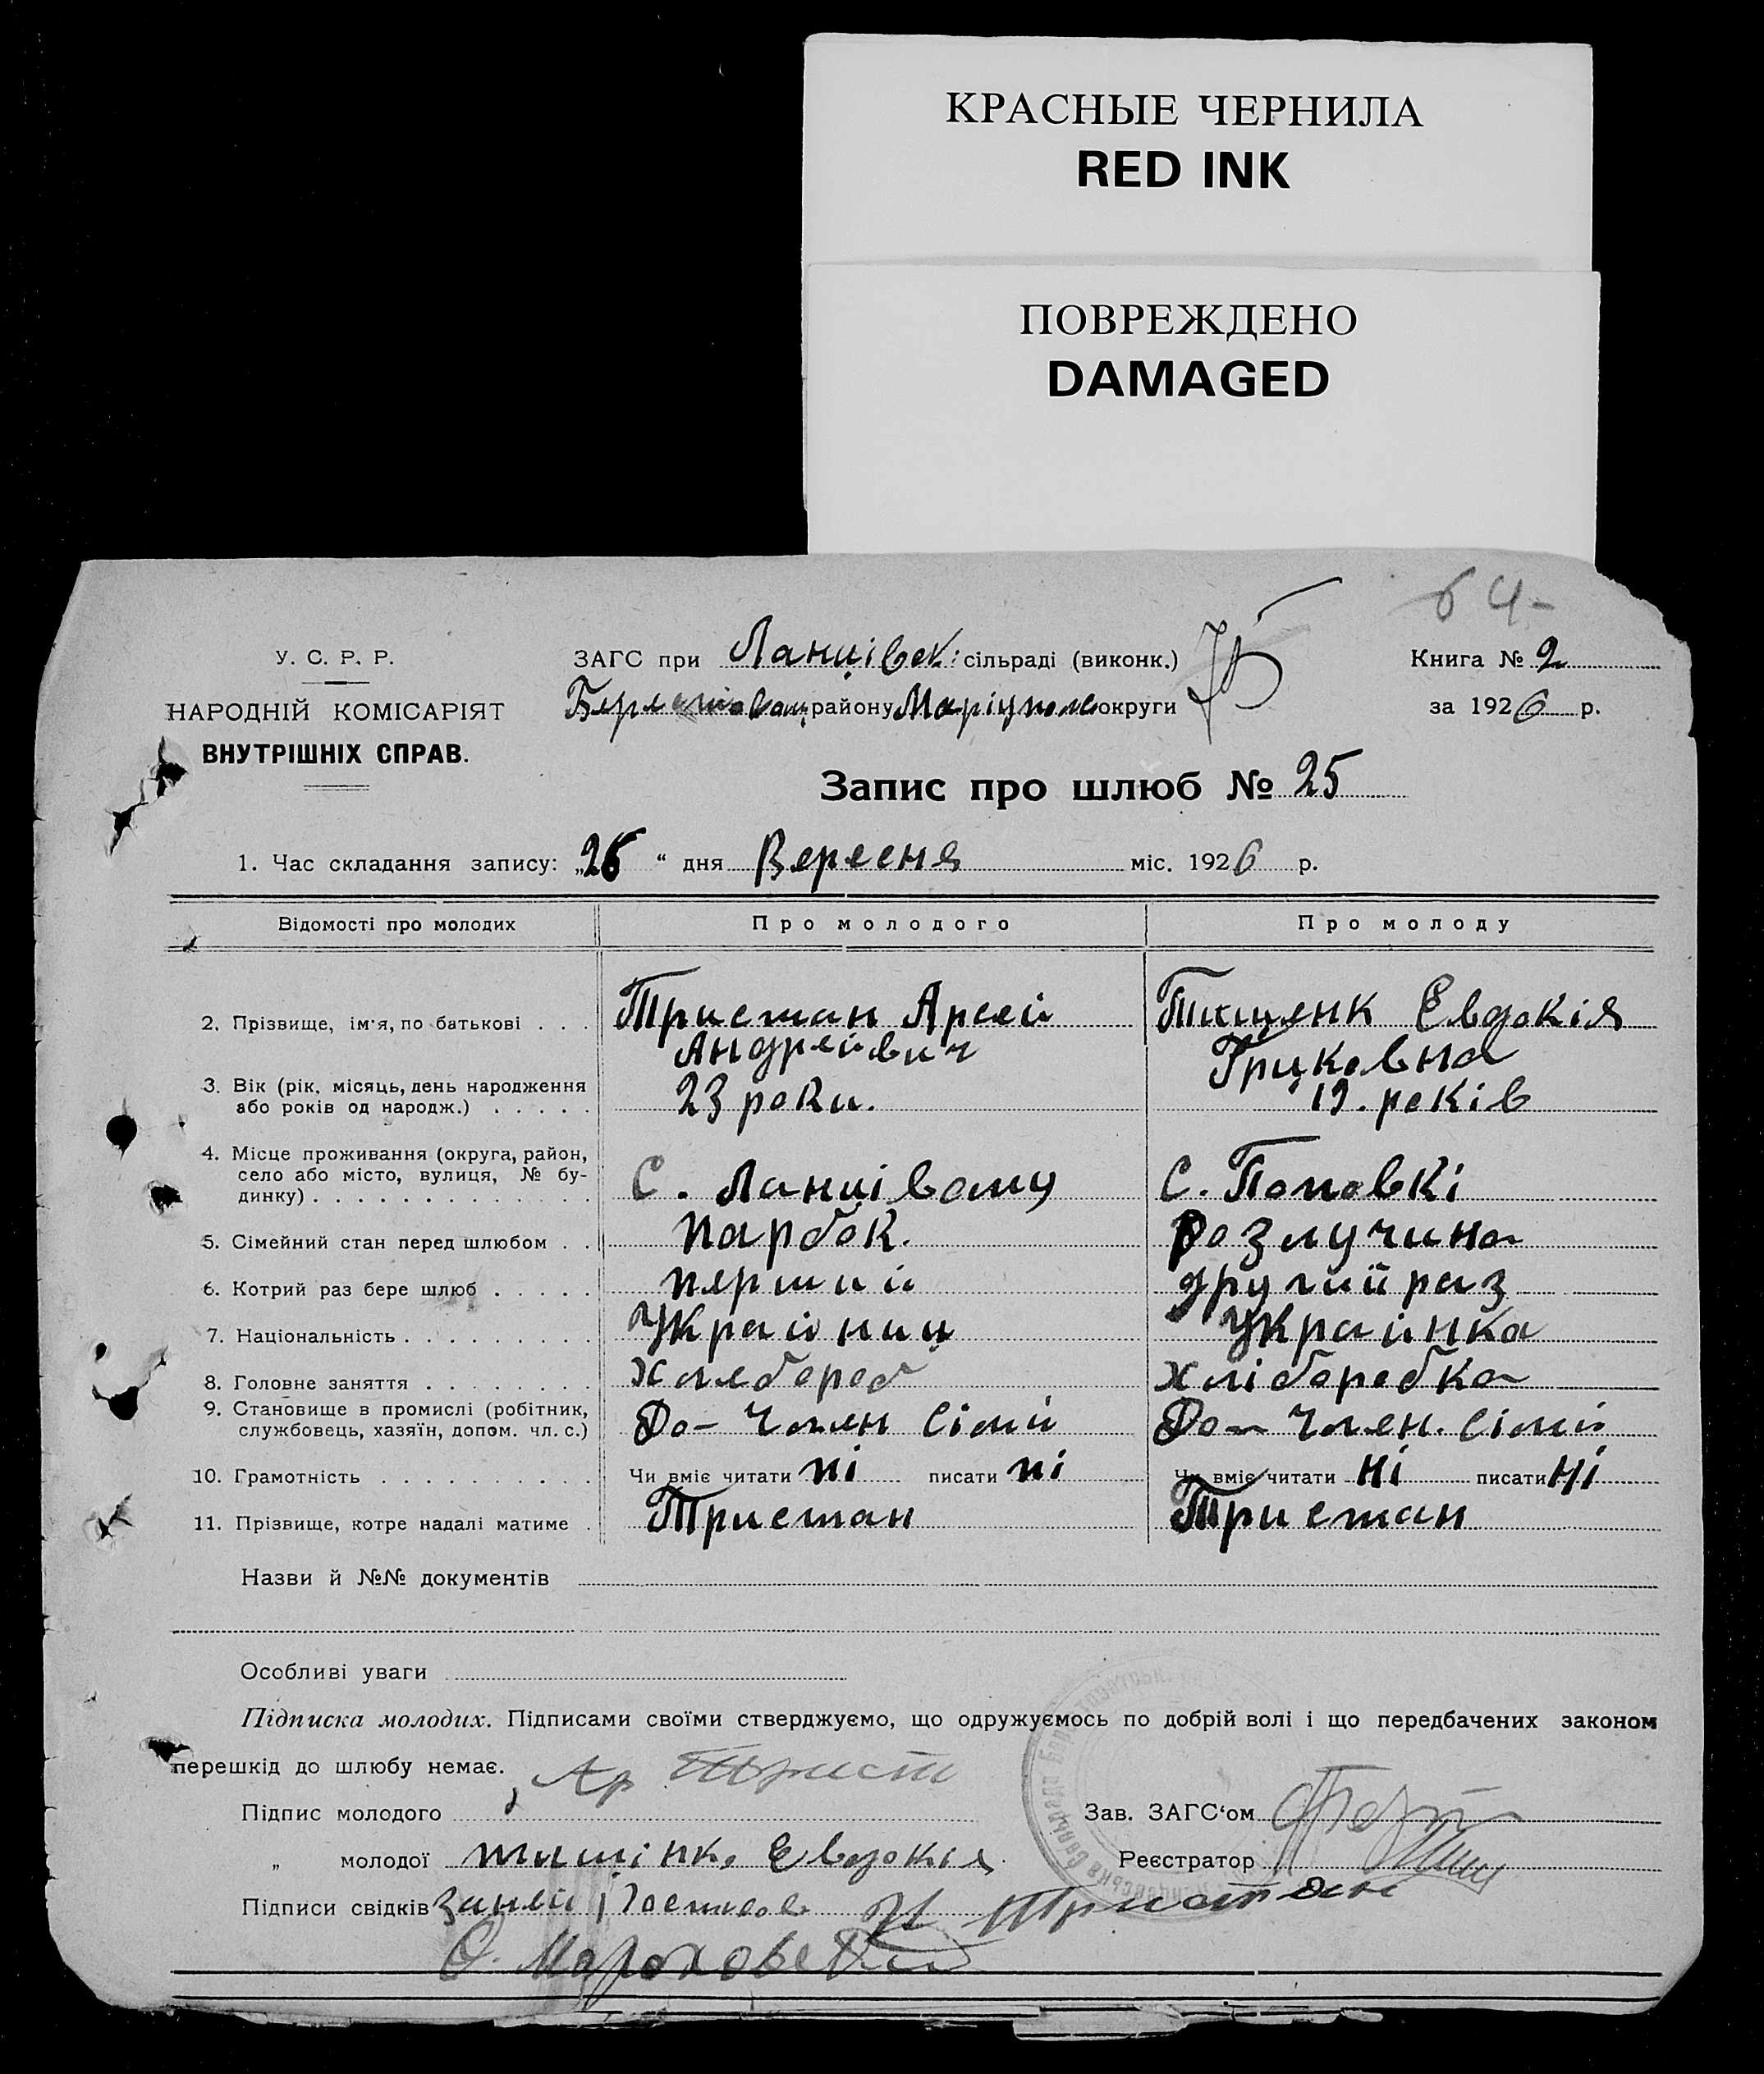 КРАСНЫЕ ЧЕРНИЛА
RED INK
ПОВРЕЖДЕНО
DAMAGED
64
У. С. Р. Р.
НАРОДНІЙ КОМІСАРІЯТ
ВНУТРІШНІХ СПРАВ.
ЗАГС при Ланцівск: сільраді (виконк.)
району Маріуполь округи
Книга № 2
за 1926 р.
Запис про шлюб № 25
1. Час складання запису: „26“ дня Вересня міс. 1926 р.
Відомості про молодих Про молодого Про молоду
2. Прізвище, ім'я, по батькові . . . Тристан Арсей Тищенк Евдокія
Андрейвич Грицковна
3. Вік (рік, місяць, день народження
або років од народж.) . . . . . 23 роки. 19. років
4. Місце проживання (округа, район,
село або місто, вулиця, № бу-
динку) . . . . . . . . . . . . . С. Ланцівому С. Поповкі
5. Сімейний стан перед шлюбом . . парбок. розлучина
6. Котрий раз бере шлюб . . . . . перший другий раз
7. Національність . . . . . . . . . Украйниц Украінка
8. Головне заняття . . . . . . . . хлебороб хліборобка
9. Становище в промислі (робітник,
службовець, хазяїн, допом. чл. с.) До- член сімй До- член. сімй
10. Грамотність . . . . . . . . . . Чи вміє читати ні писати ні Чи вміє читати ні писати ні
11. Прізвище, котре надалі матиме . Тристан Тристан
Назви й №№ документів
Особливі уваги
Підписка молодих. Підписами своїми стверджуємо, що одружуємось по добрій волі і що передбачених законом
перешкід до шлюбу немає.
Підпис молодого Ар Трист
Зав. ЗАГС‘ом
„ молодої тишінко Евдокія
Реєстратор
Підписи свідків Тристан
О.